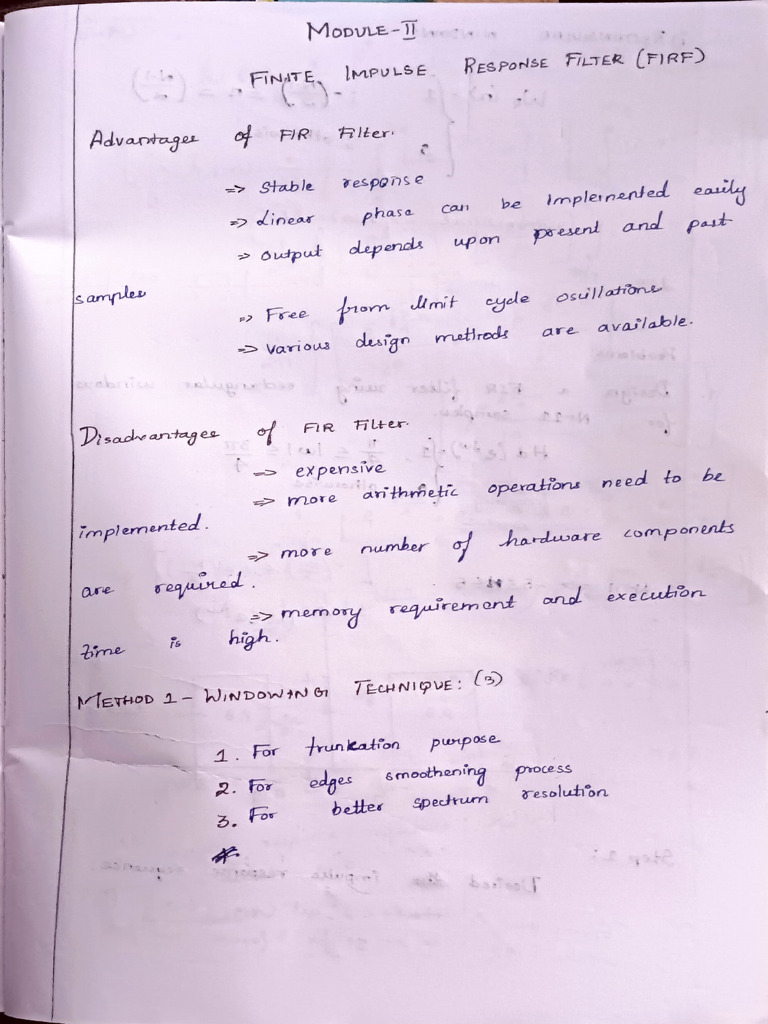 MODULE-II
FINITE IMPULSE RESPONSE FILTER (FIRF)
Advantages of FIR Filter.
=> Stable response
=> Linear phase can be implemented easily
=> output depends upon present and past
samples
=> Free from limit cycle oscillations
=> various design methods are available.
Disadvantages of FIR Filter.
=> expensive
=> more arithmetic operations need to be
implemented.
=> more number of hardware components
are required.
=> memory requirement and execution
time is high.
METHOD 1 - WINDOWING TECHNIQUE: (3)
1. For trunkation purpose
2. For edges smoothening process
3. For better spectrum resolution